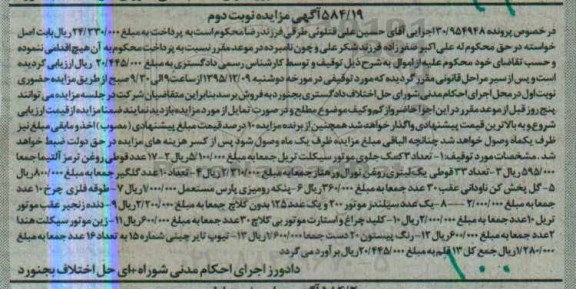 ۵۸۴/۱۹ آگهی مزایده نوبت دوم
در خصوص پرونده ۳۰/۹۵۴۹۴۸ اجرایی آقای حسین علی فرزند رضا محکوم است به پرداخت به مبلغ ۲۴/۳۳۰/۰۰۰ ریال بابت اصل
خواسته در حق محکوم له علی اکبر صفرزاده فرزند شکر علی و چون نامبرده در موعد مقرر نسبت به پرداخت محکوم به آن هیچ اقدامی ننموده
و حسب تقاضای خود محکوم علیه از اموال به شرح ذیل توقیف و توسط کارشناس رسمی دادگستری به مبلغ ۲۰/۴۴۵/۰۰۰ ریال ارزیابی گردیده
است و پس از سیر مراحل قانونی مقرر گردیده که مورد توقیفی در مورخه دوشنبه ۱۳۹۵/۱۲/۰۹ از ساعت ۹ الی ۹/۳۰ صبح از طریق مزایده حضوری
نوبت اول در محل اجرای احکام مدنی شورای حل اختلاف دادگستری بجنورد به فروش برسد بنابراین متقاضیان شرکت در جلسه مزایده می توانند
پنج روز قبل از موعد مقرر در این اجرا حاضر و از کم و کیف موضوع مطلع و در صورت تمایل از مورد مزایده بازدید نمایند ضمنا مزایده از قیمت ارزیابی
شروع و به بالاترین قیمت پیشنهادی واگذار خواهد شد همچنین از برنده مزایده ۱۰ درصد قیمت مبلغ پیشنهادی (مصوب) اخذ و مابقی مبلغ نیز
ظرف یکماه وصول خواهد شد چنانچه الباقی مبلغ مزایده ظرف یک ماه وصول شود پس از کسر هزینه های مزایده در حق دولت ضبط خواهد
شد. مشخصات مورد توقیف: ۱- تعداد ۳ کمک جلوی موتور سیکلت تریل جمعا به مبلغ ۵/۱۰۰/۰۰۰ ریال ۲- ۱۷ عدد قوطی روغن ترمز آلتیما جمعا
۵۹۵/۰۰۰ ریال ۳- تعداد ۳۳ قوطی یک لیتری روغن جمعا به مبلغ ۲/۳۱۰/۰۰۰ ریال ۴- تعداد ۱۰ عدد گلگیر جمعا به مبلغ ۸۰۰/۰۰۰ ریال
۵- گل پخش کن ناودانی عقب ۳۰ عدد جمعا به مبلغ ۳۶۰/۰۰۰ ریال ۶- پنکه رومیزی پارس مستعمل ۱/۰۰۰/۰۰۰ ریال ۷- طوقه فلزی چرخ ۱۰ عدد
جمعا به مبلغ ۲/۰۰۰/۰۰۰ ۸- یک عدد سیلندر موتور ۲۰۰ و یک عدد ۱۲۵ بدون کلاچ جمعا به مبلغ ۲/۲۰۰/۰۰۰ ریال ۹- دنده زنجیر عقب موتور
تریل ۱۰ عدد جمعا به مبلغ ۲/۰۰۰/۰۰۰ ریال ۱۰- کلید چراغ و استارت موتور بی کلاچ ۳۰ عدد جمعا به مبلغ ۶۰۰/۰۰۰ ریال ۱۱- زین موتور سیکلت هندا
۲ عدد جمعا به مبلغ ۶۰۰/۰۰۰ ریال ۱۲- رنگ پیستون ۲۰ دست جمعا ۱/۶۰۰/۰۰۰ ریال ۱۳- تیوپ تایر چینی شماره ۱۵ به تعداد ۱۶ عدد جمعا به مبلغ
۱/۲۸۰/۰۰۰ ریال جمع کل ۱۳ قلم به مبلغ ۲۰/۴۴۵/۰۰۰ ریال برآورد می گردد
دادورز اجرای احکام مدنی شورا های حل اختلاف بجنورد